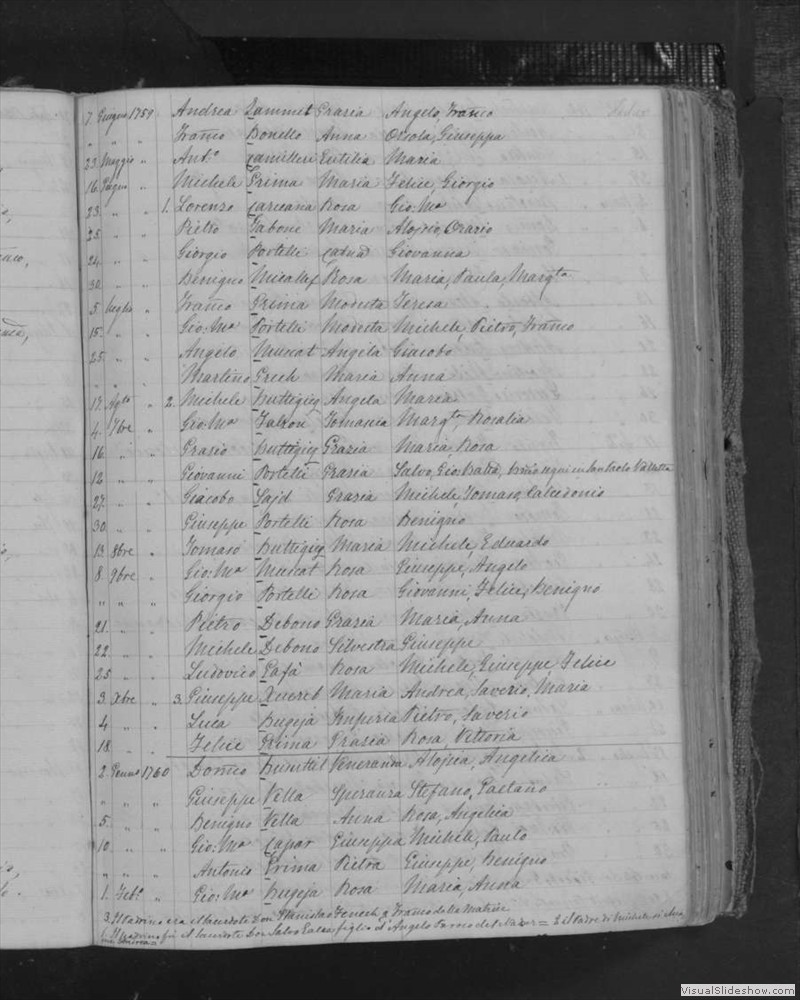 7 Giugno 1759 Andrea Zammit Grazia Angelo, Franco
" " " Franco Bonello Anna Orsola, Giuseppa
23 Maggio " Anto Camilleri Eutilia Maria
16 Giugno " Michele Grima Maria Felice, Giorgio
23 " " 1. Lorenzo Caruana Rosa Gio: Ma
25 " " Pietro Gabone Maria Aloisio, Orazio
24 " " Giorgio Portelli Giovanna
30 " " Benigno Micallef Rosa Maria, Paula, Margta
5 Luglio " Franco Grima Modesta Teresa
15 " " Gio: Ma Portelli Modesta Michele, Pietro, Franco
25 " " Angelo Muscat Angela Giacobo
" " " Martino Grech Maria Anna
17 Agto " 2. Michele Buttigieg Angela Maria
4 7bre " Gio: Ma Falzon Tomania Margta, Rosalia
16 " " Grazio Buttigieg Grazia Maria, Rosa
12 " " Giovanni Portelli Grazia Salvo, Gio: Batta,
27 " " Giacobo Sajd Grazia Michele, Tomaso, Calcedonio
30 " " Giuseppe Portelli Rosa Benigno
13 8bre " Tomaso Buttigieg Maria Michele, Eduardo
8 9bre " Gio: Ma Muscat Rosa Giuseppe, Angelo
" " " Giorgio Portelli Rosa Giovanni, Felice, Benigno
21 " " Pietro Debono Grazia Maria, Anna
22 " " Michele Debono Silvestra Giuseppe
25 " " Ludovico Pafà Rosa Michele, Giuseppe Felice
3 Xbre " 3. Giuseppe Xuereb Maria Andrea, Saverio, Maria
4 " " Luca Bugeja Ruperia Pietro, Saverio
18 " " Felice Grima Grazia Rosa, Vittoria
2 Genno 1760 Domco Bunttil Veneranda Alojsea, Angelica
" " " Giuseppe Vella Speranza Stefano, Gaetano
5 " " Benigno Vella Anna Rosa, Angelica
10 " " Gio: Ma Capar Giuseppa Michele, Paulo
" " " Antonio Grima Pietra Giuseppe, Benigno
1 Febo " Gio: Ma Bugeja Rosa Maria, Anna
3. Il Padrino era il Sacerdote Don Stanislao Fenech q Franco della Matrice
1. Il padrino fù il Sacerdote Don Salvo figlio d'Angelo = 2 il Padre di Michele
VisualSlideshow.com